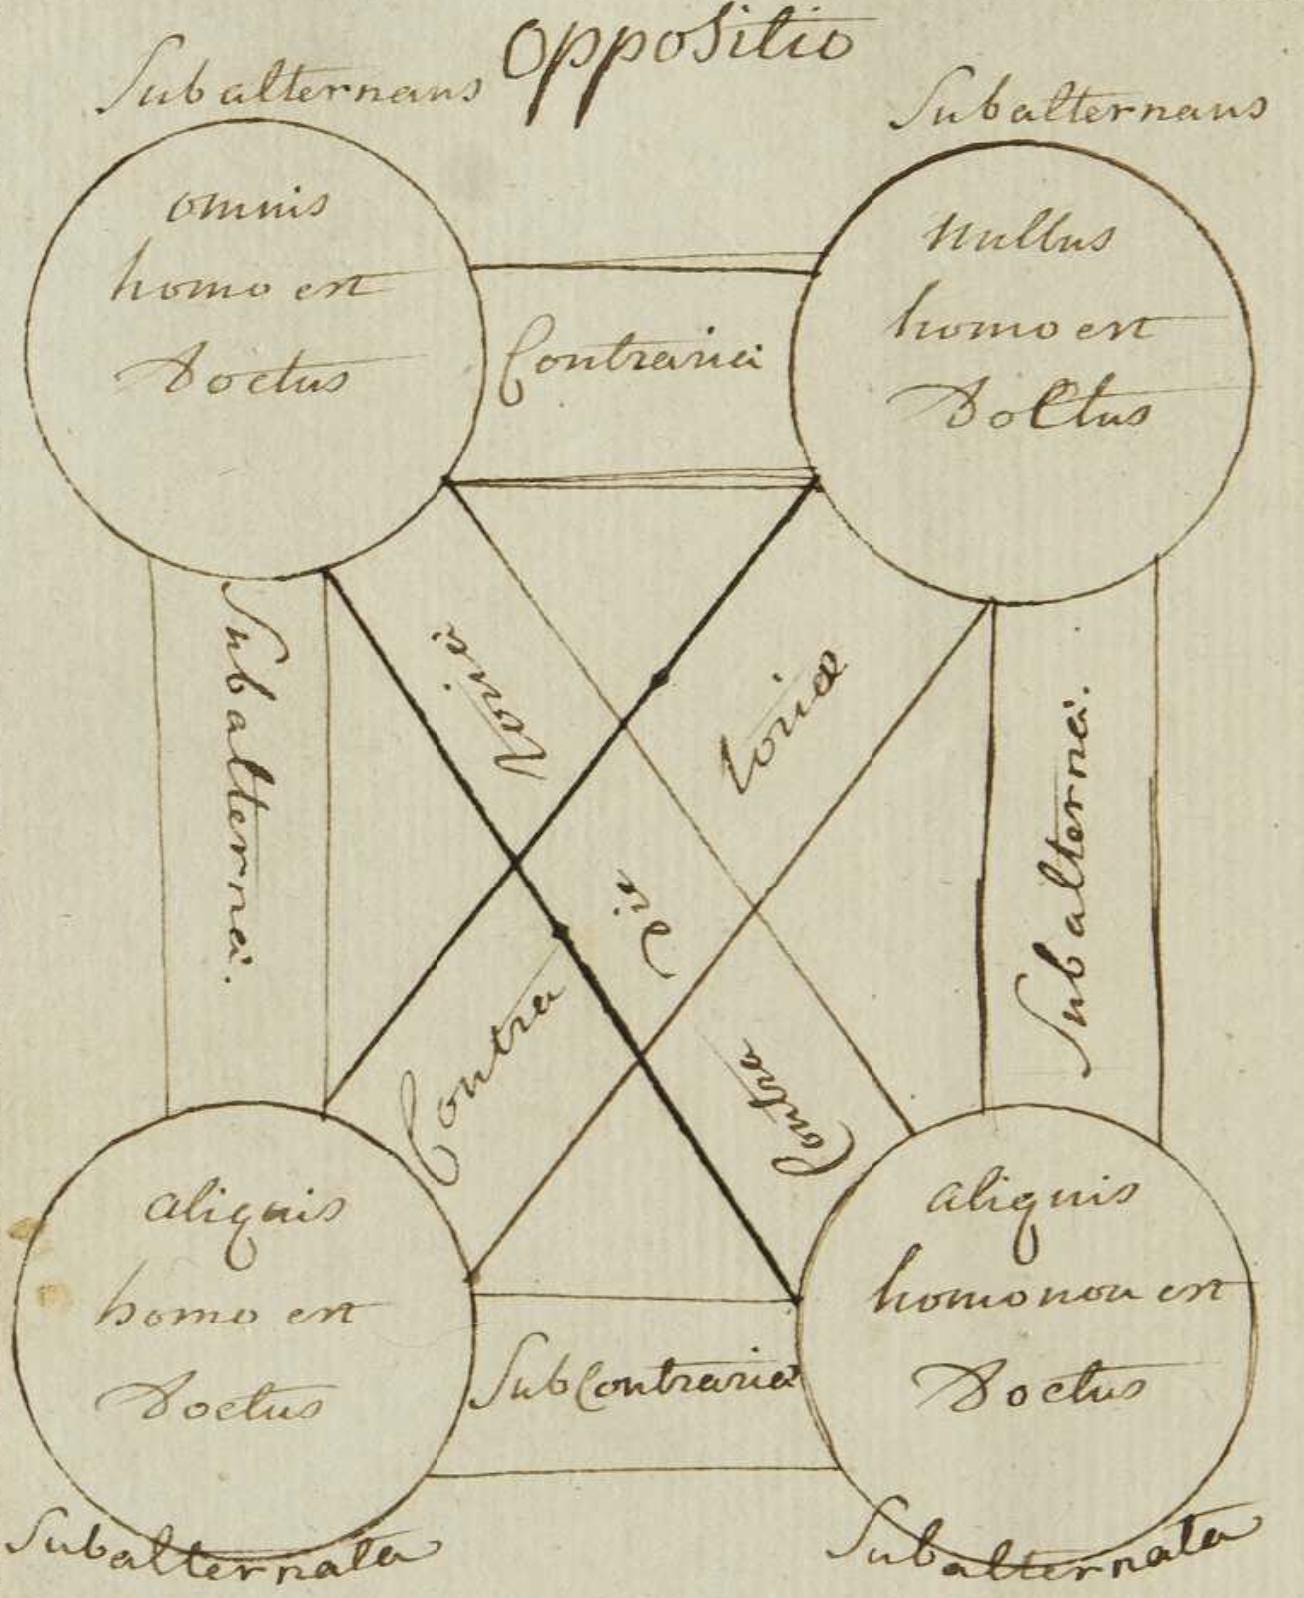 Oppositio
Subalternans
Subalternans
omnis
homo est
Doctus
Contrariæ
Nullus
homo est
Doctus
Subalternæ.
Contra
dic
toriæ
Contra
toriæ
Subalternæ.
aliquis
homo est
Doctus
SubContrariæ
aliquis
homo non est
Doctus
Subalternata
Subalternata